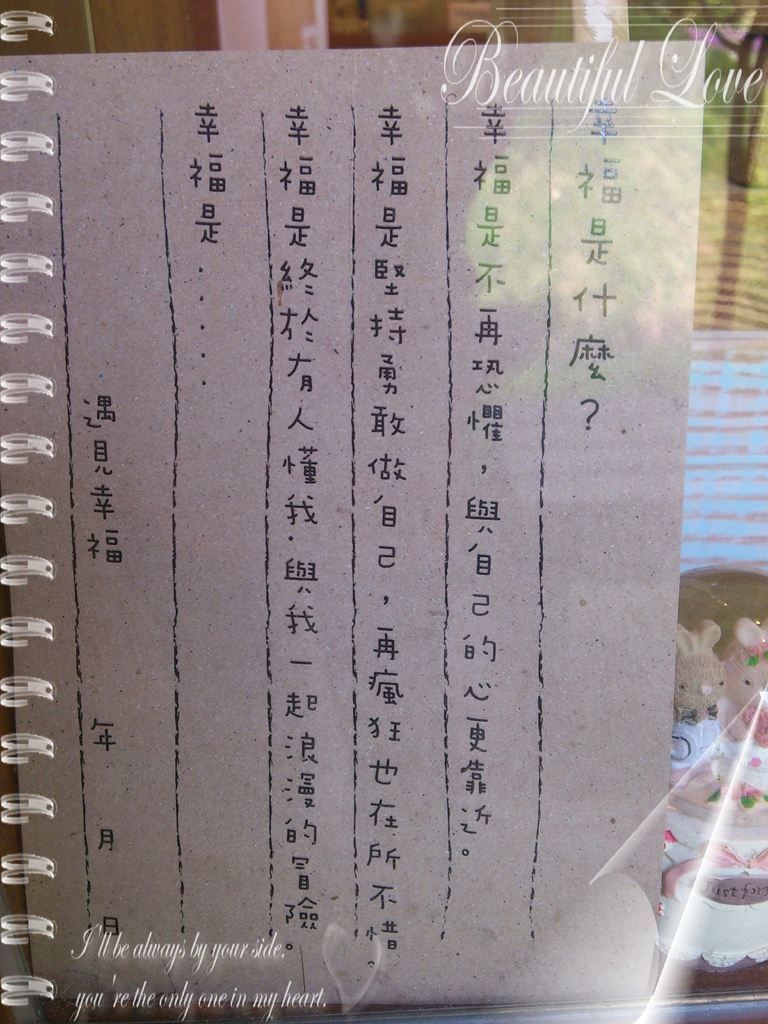 Beautiful Love
幸福是什麼？
幸福是不再恐懼，與自己的心更靠近。
幸福是堅持勇敢做自己，再瘋狂也在所不惜。
幸福是終於有人懂我．與我一起浪漫的冒險。
幸福是．．．．．
遇見幸福 年 月 日
I'll be always by your side.
you're the only one in my heart.